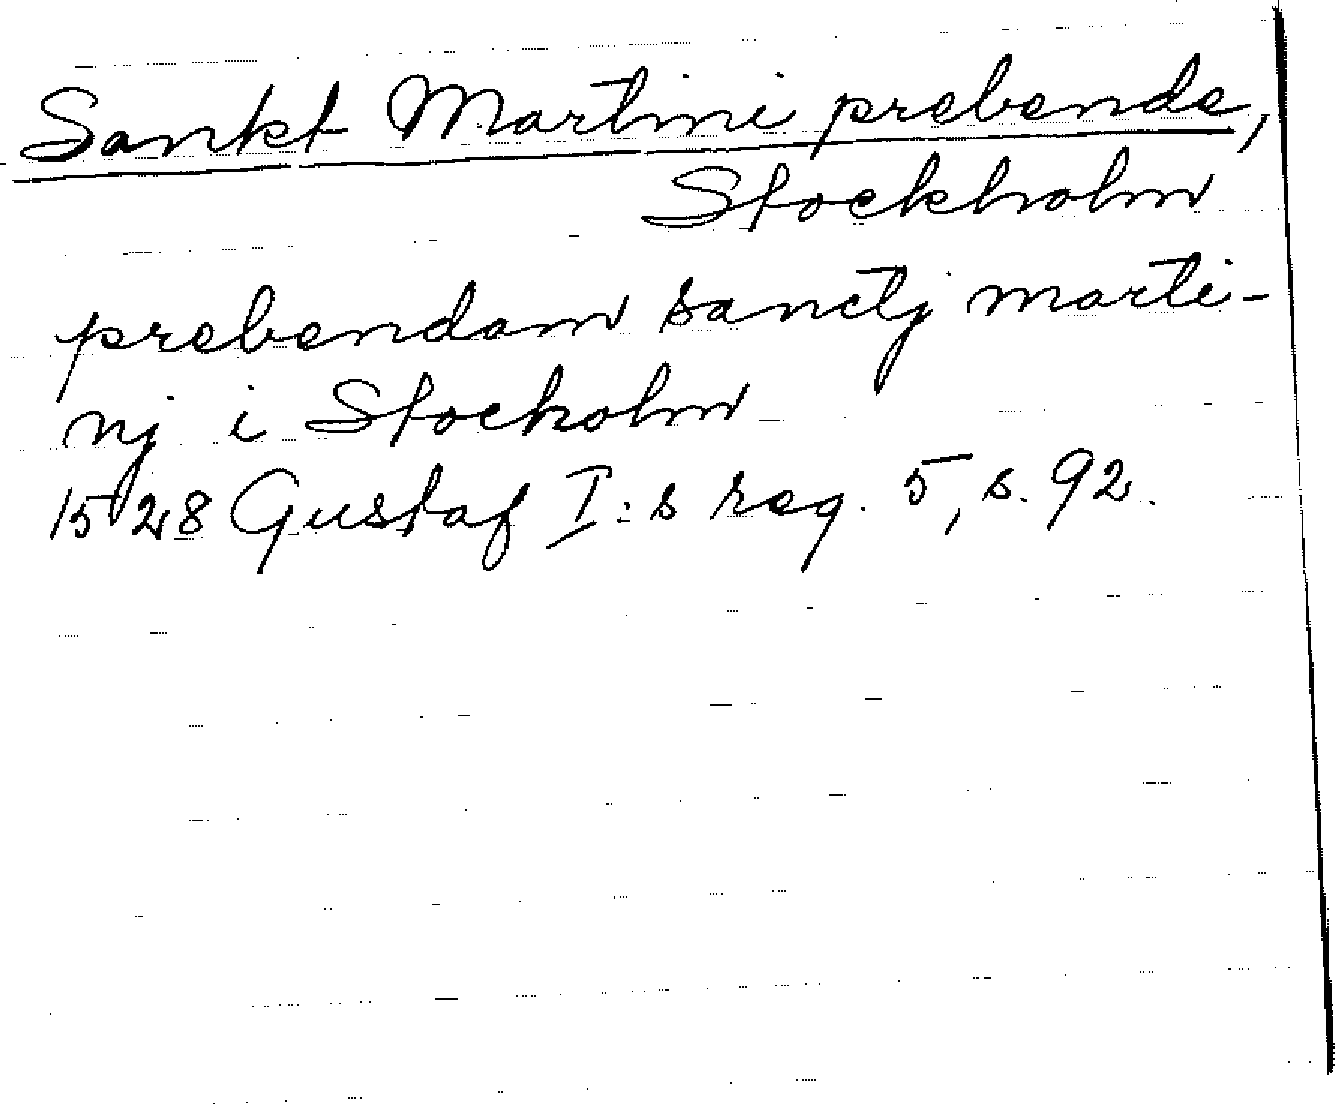 Sankt Martini prebende,
Stockholm
prebendam sanctj marti-
nj i Stockolm
1528 Gustaf I:s reg. 5, s. 92.